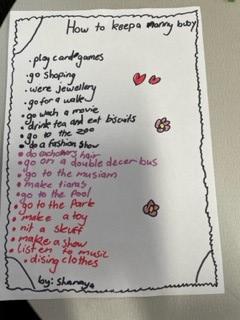 How to keep a nanny busy
. play card games
. go shoping
. were jewellery
. go for a walk
. go wach a movie
. drink tea and eat biscuits
. go to the zoo
. do a fashion show
. do eachothers hair
. go on a double decer bus
. go to the musiam
. make tiaras
. go to the pool
. go to the Park
. make a toy
. nit a skuff
. make a show
. listen to music
. dising clothes
by: Shanaya